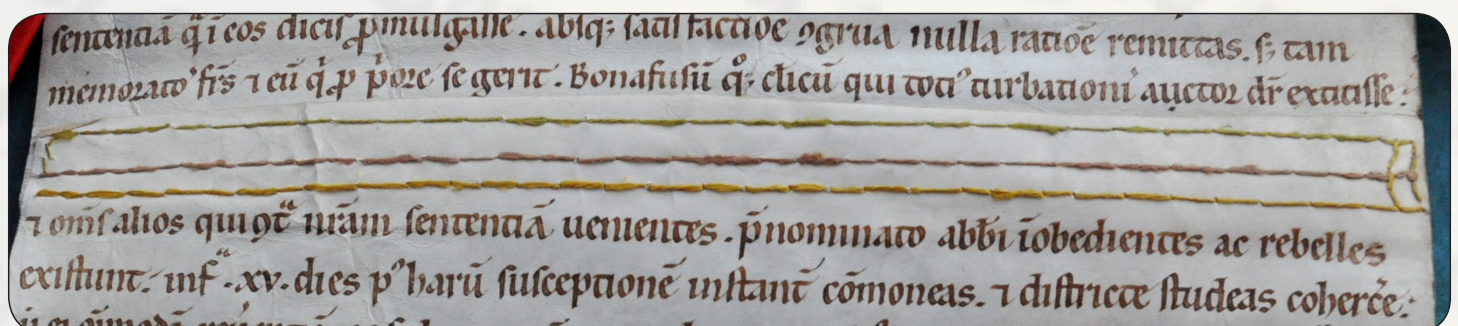 sententiā q̄ i eos dicis p̱mulgasse. absq; satisfactiōe ꝯgrua nulla ratiōe remittas. s; tam
memorato frs̄ ⁊ eū q̇ p̱ p̄ore se gerit. Bonafusū qͦ; cl̄icū qui toti᾿ turbationiˢ auctor dr̄ extitisse.
⁊ om̄s alios qui ꝯtᵃ nr̄am sententiā uenientes. p̄nominato abb̄i īobedientes ac rebelles
existunt. infᵃ .xv. dies p᾿ harū susceptionē instant̄ cōmoneas. ⁊ districte studeas coherc̄e.